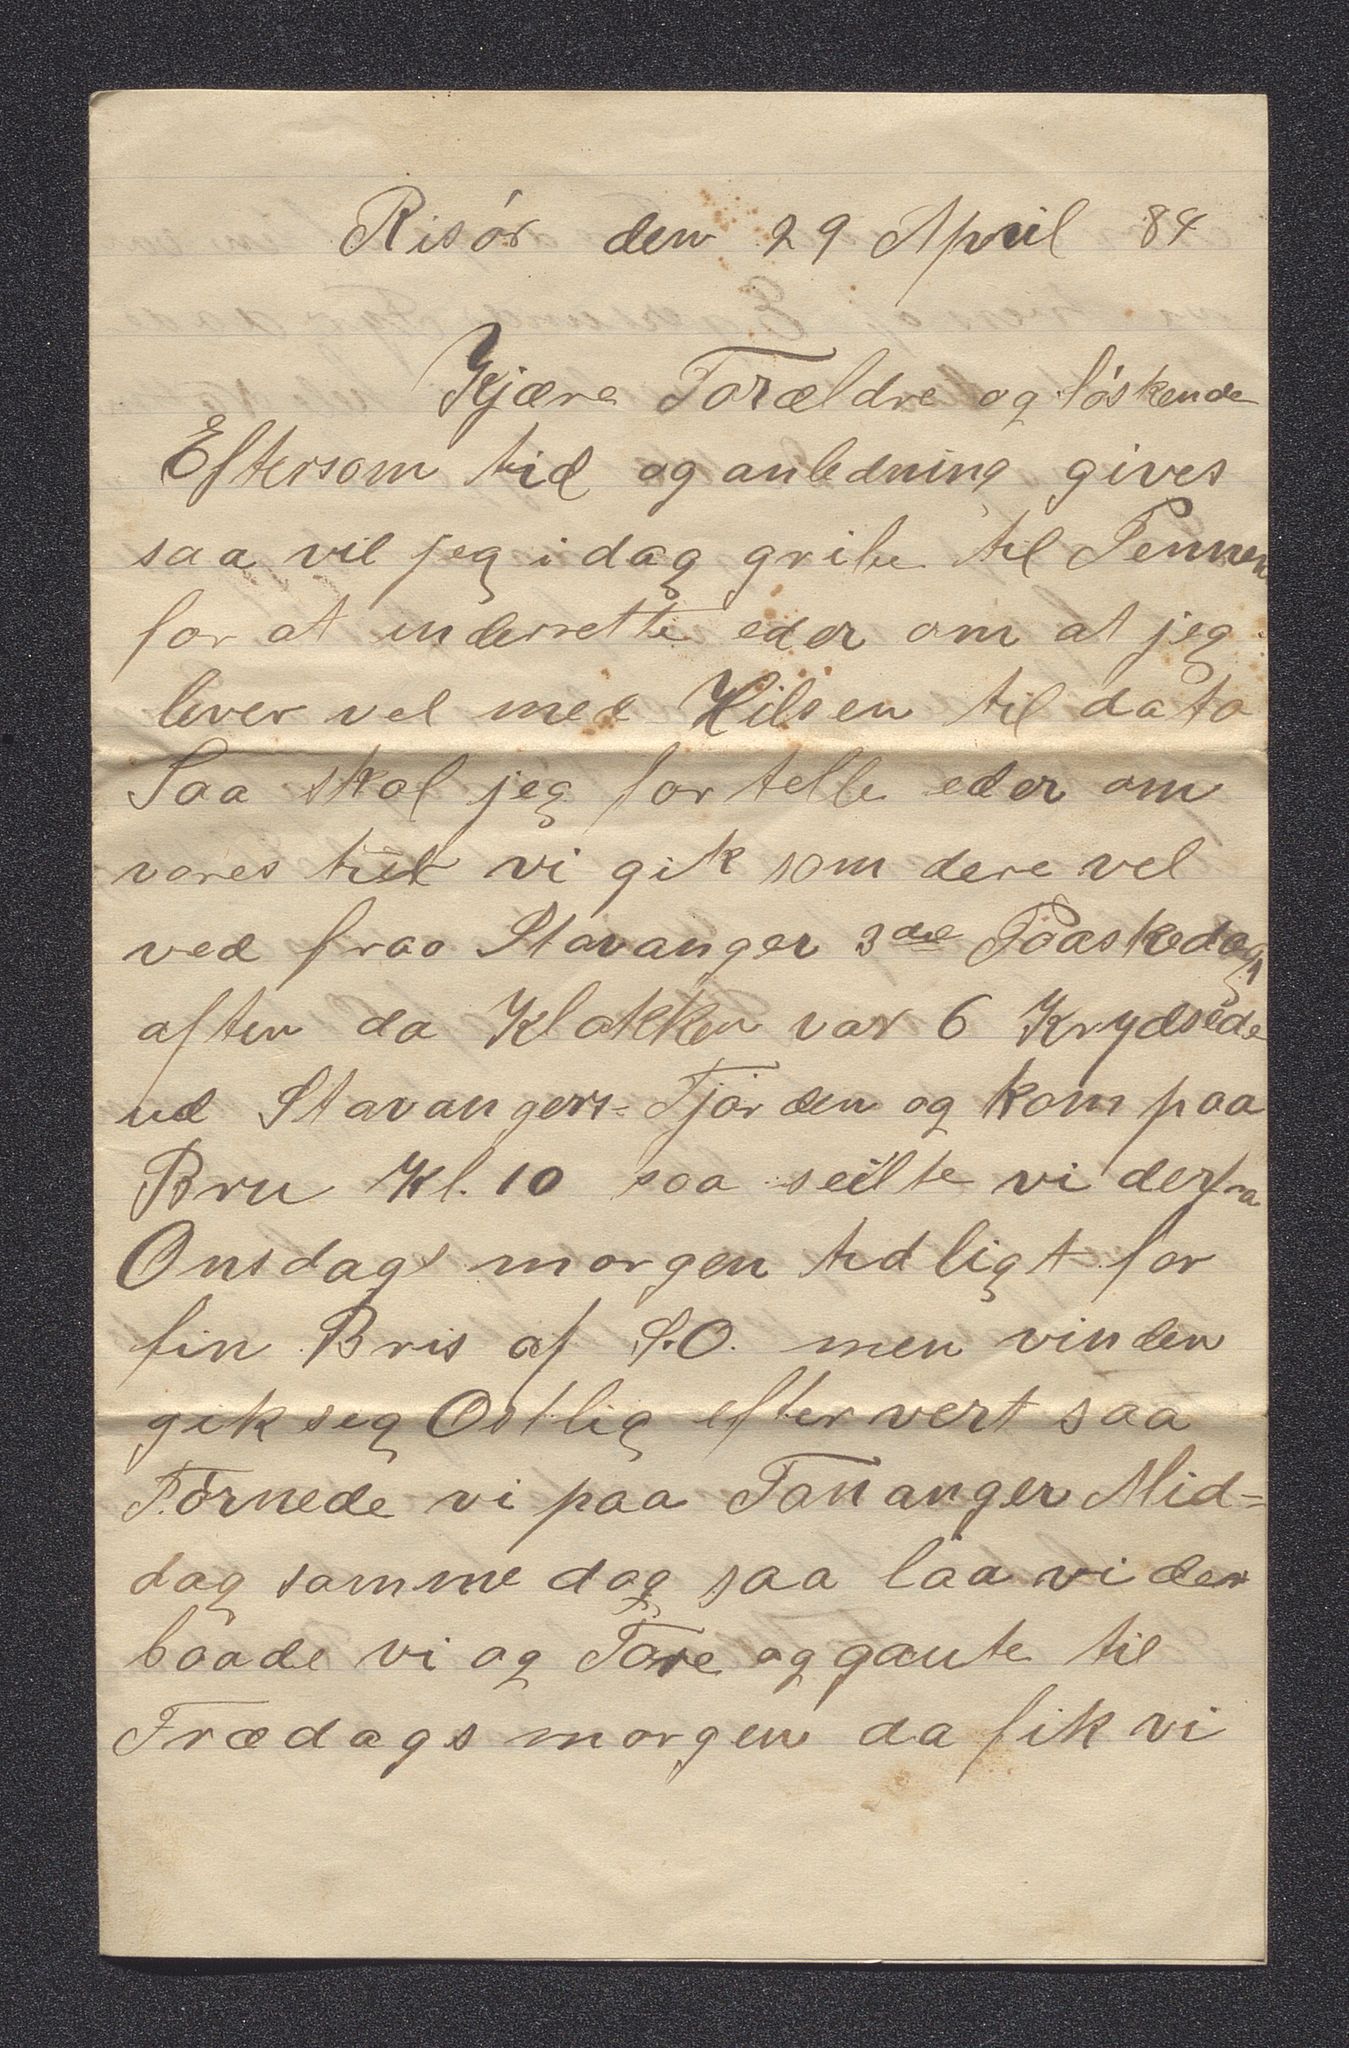 Risór den 29 April 84
Kjære Forældre og søskende
Eftersom tid og anledning gives
saa vil jeg i dag gribe til Pennen
for at underrette eder om at jeg
lever vel med Hilsen til dato
Saa skal jeg fortelle eder om
vores tid vi gik som dere vel
ved fraa Stavanger 3die Paaskedags
aften da Klokken var 6 Krydsede
ud Stavangers-Fjorden og kom paa
Bru Kl. 10 saa seilte vi derfra
Onsdags morgen tidligt for
fin Bris af S.O. men vinden
gik seg Ostlig efter vert saa
Tórnede vi paa Tananger Mid=
dag samme dag saa laa vi der
baade vi og Tore og gaute til
Frædags morgen da fik vi